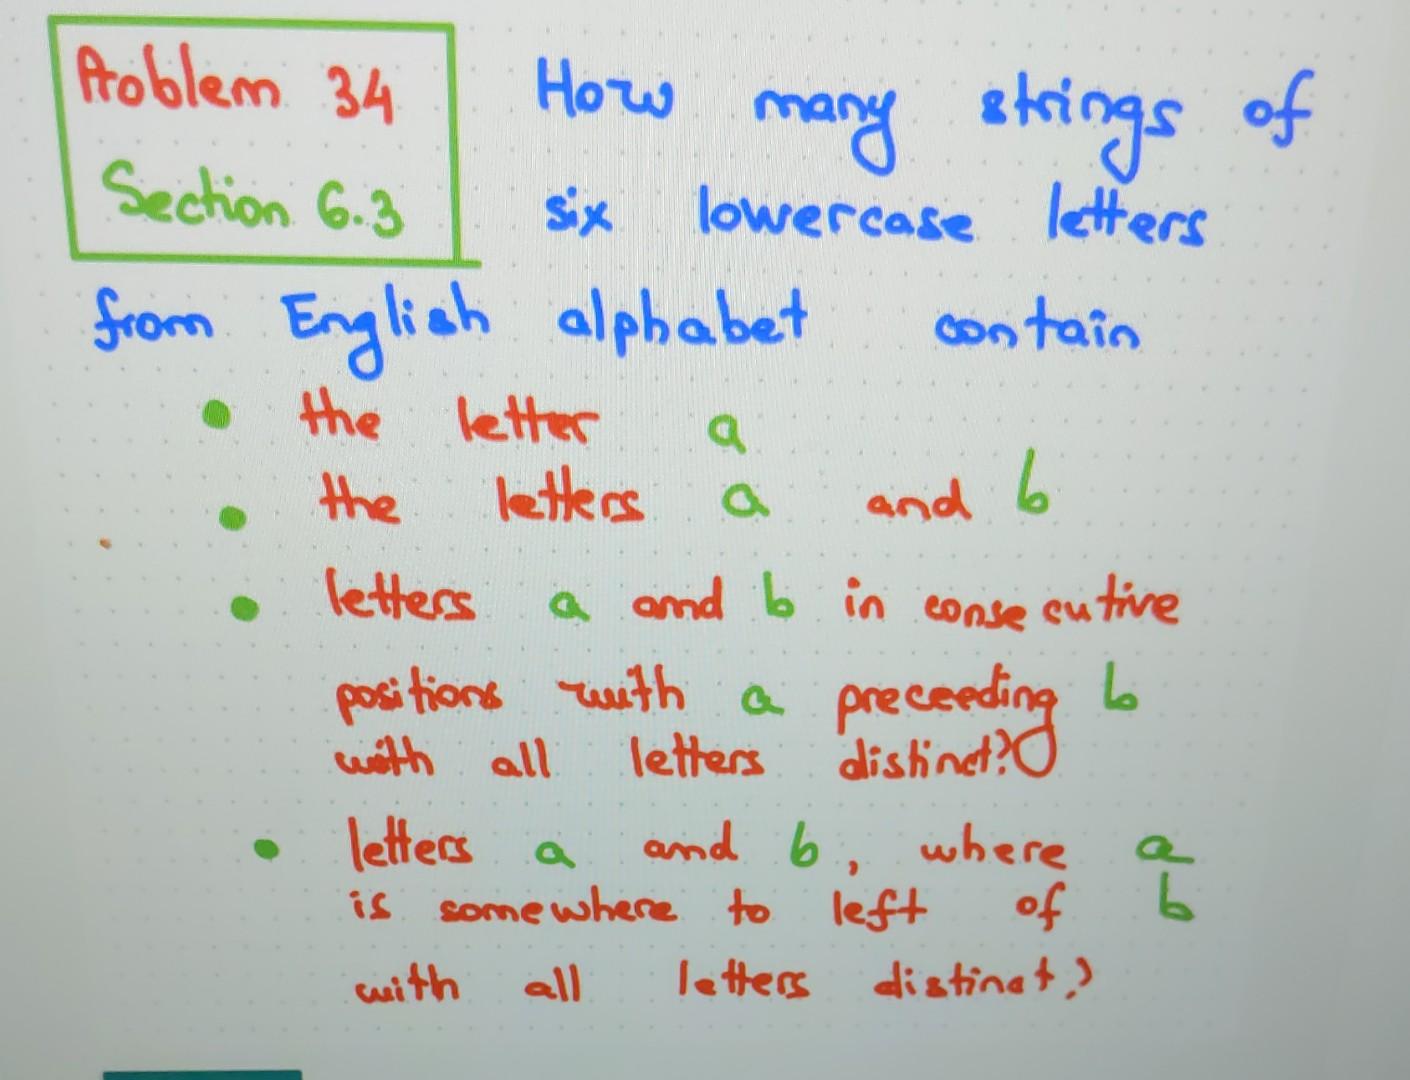 Problem 34
Section 6.3
How many strings of
six lowercase letters
from English alphabet contain
the letter a
the letters a and b
letters a and b in consecutive
positions with a preceeding b
with all letters distinct?
letters a and b, where a
is somewhere to left of b
with all letters distinct?